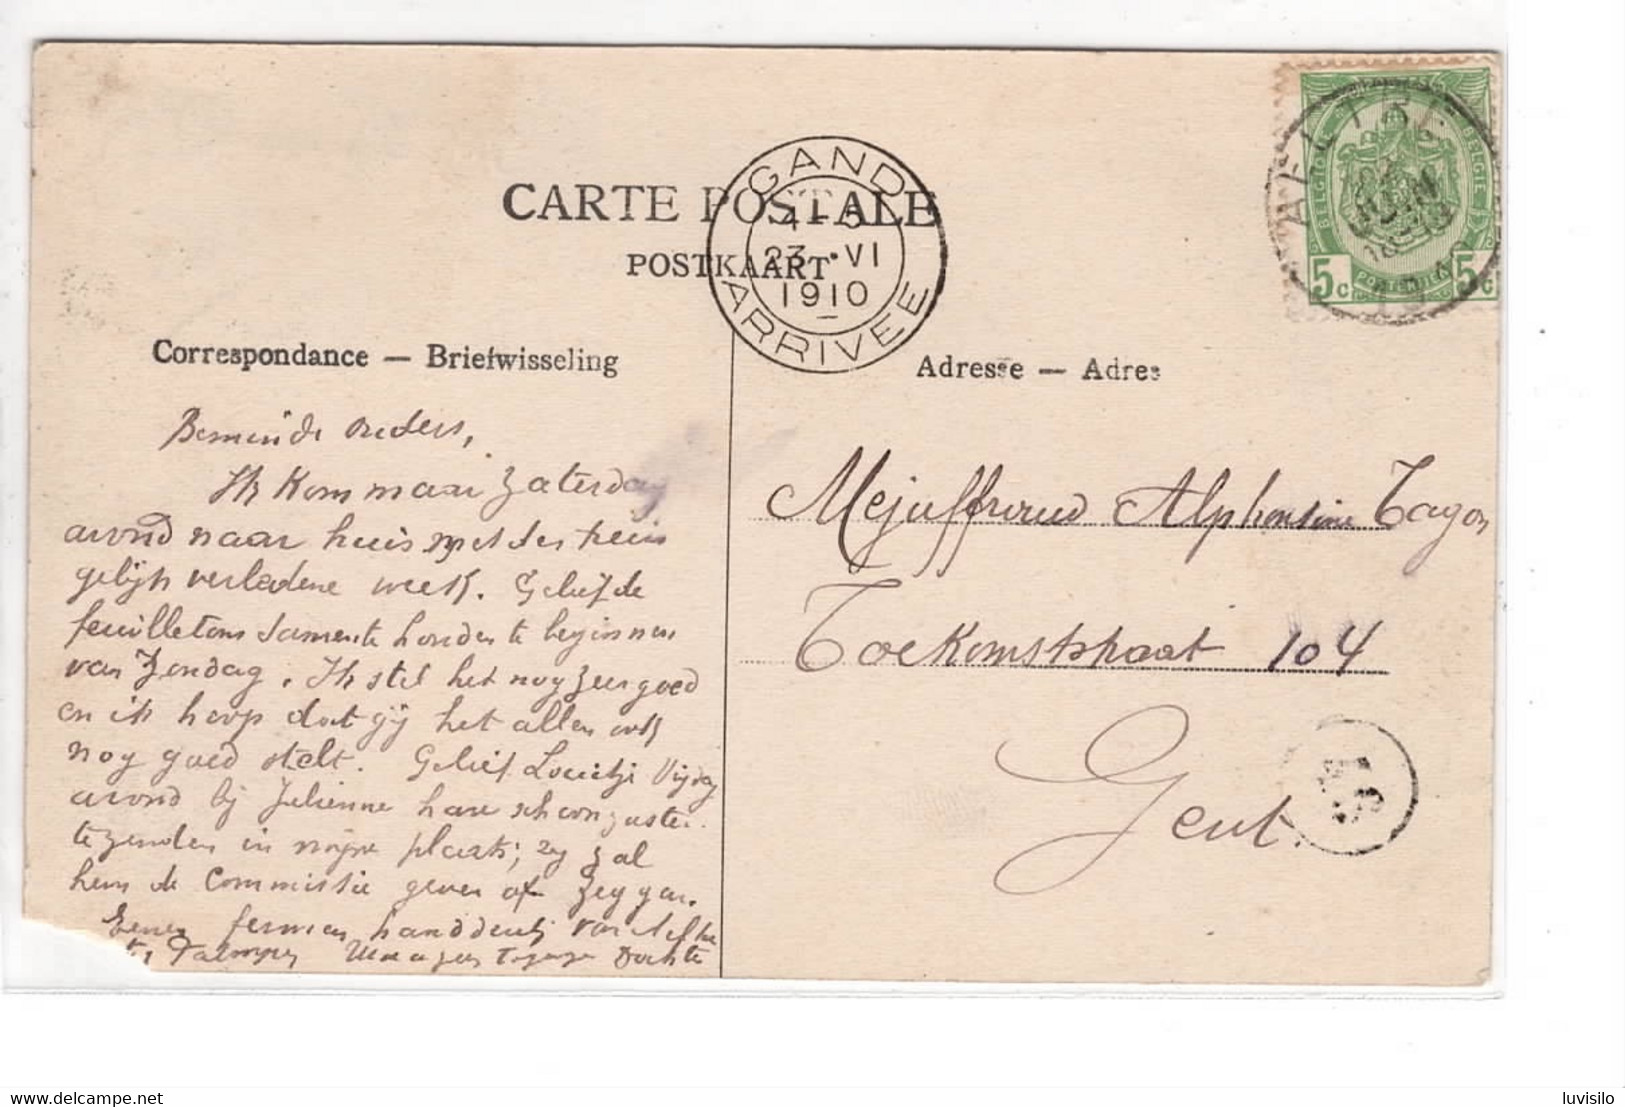 CARTE POSTALE
POSTKAART
GAND
4-5
23 VI
1910
ARRIVEE
AELTRE
BELGIQUE
BELGIE
5c
5c
Correspondance — Briefwisseling
Adresse — Adres
Beminde ouders,
Ik kom maar Zaterdag
avond naar huis met den trein
gelijk verledene week. Gelief de
feuilletons samen te houden te beginnen
van Zondag. Ik stel het nog zeer goed
en ik hoop dat gij het allen ook
nog goed stelt. Gelief Louitje Vrijdag
avond bij Julienne hare schoonzuster
te zenden in mijne plaats; zij zal
hem de Commissie geven of zeggen.
Eenen fermen handdruk van
Dochter
Mejuffroud Alphonsine Tagon
Toekomststraat 104
Gent.